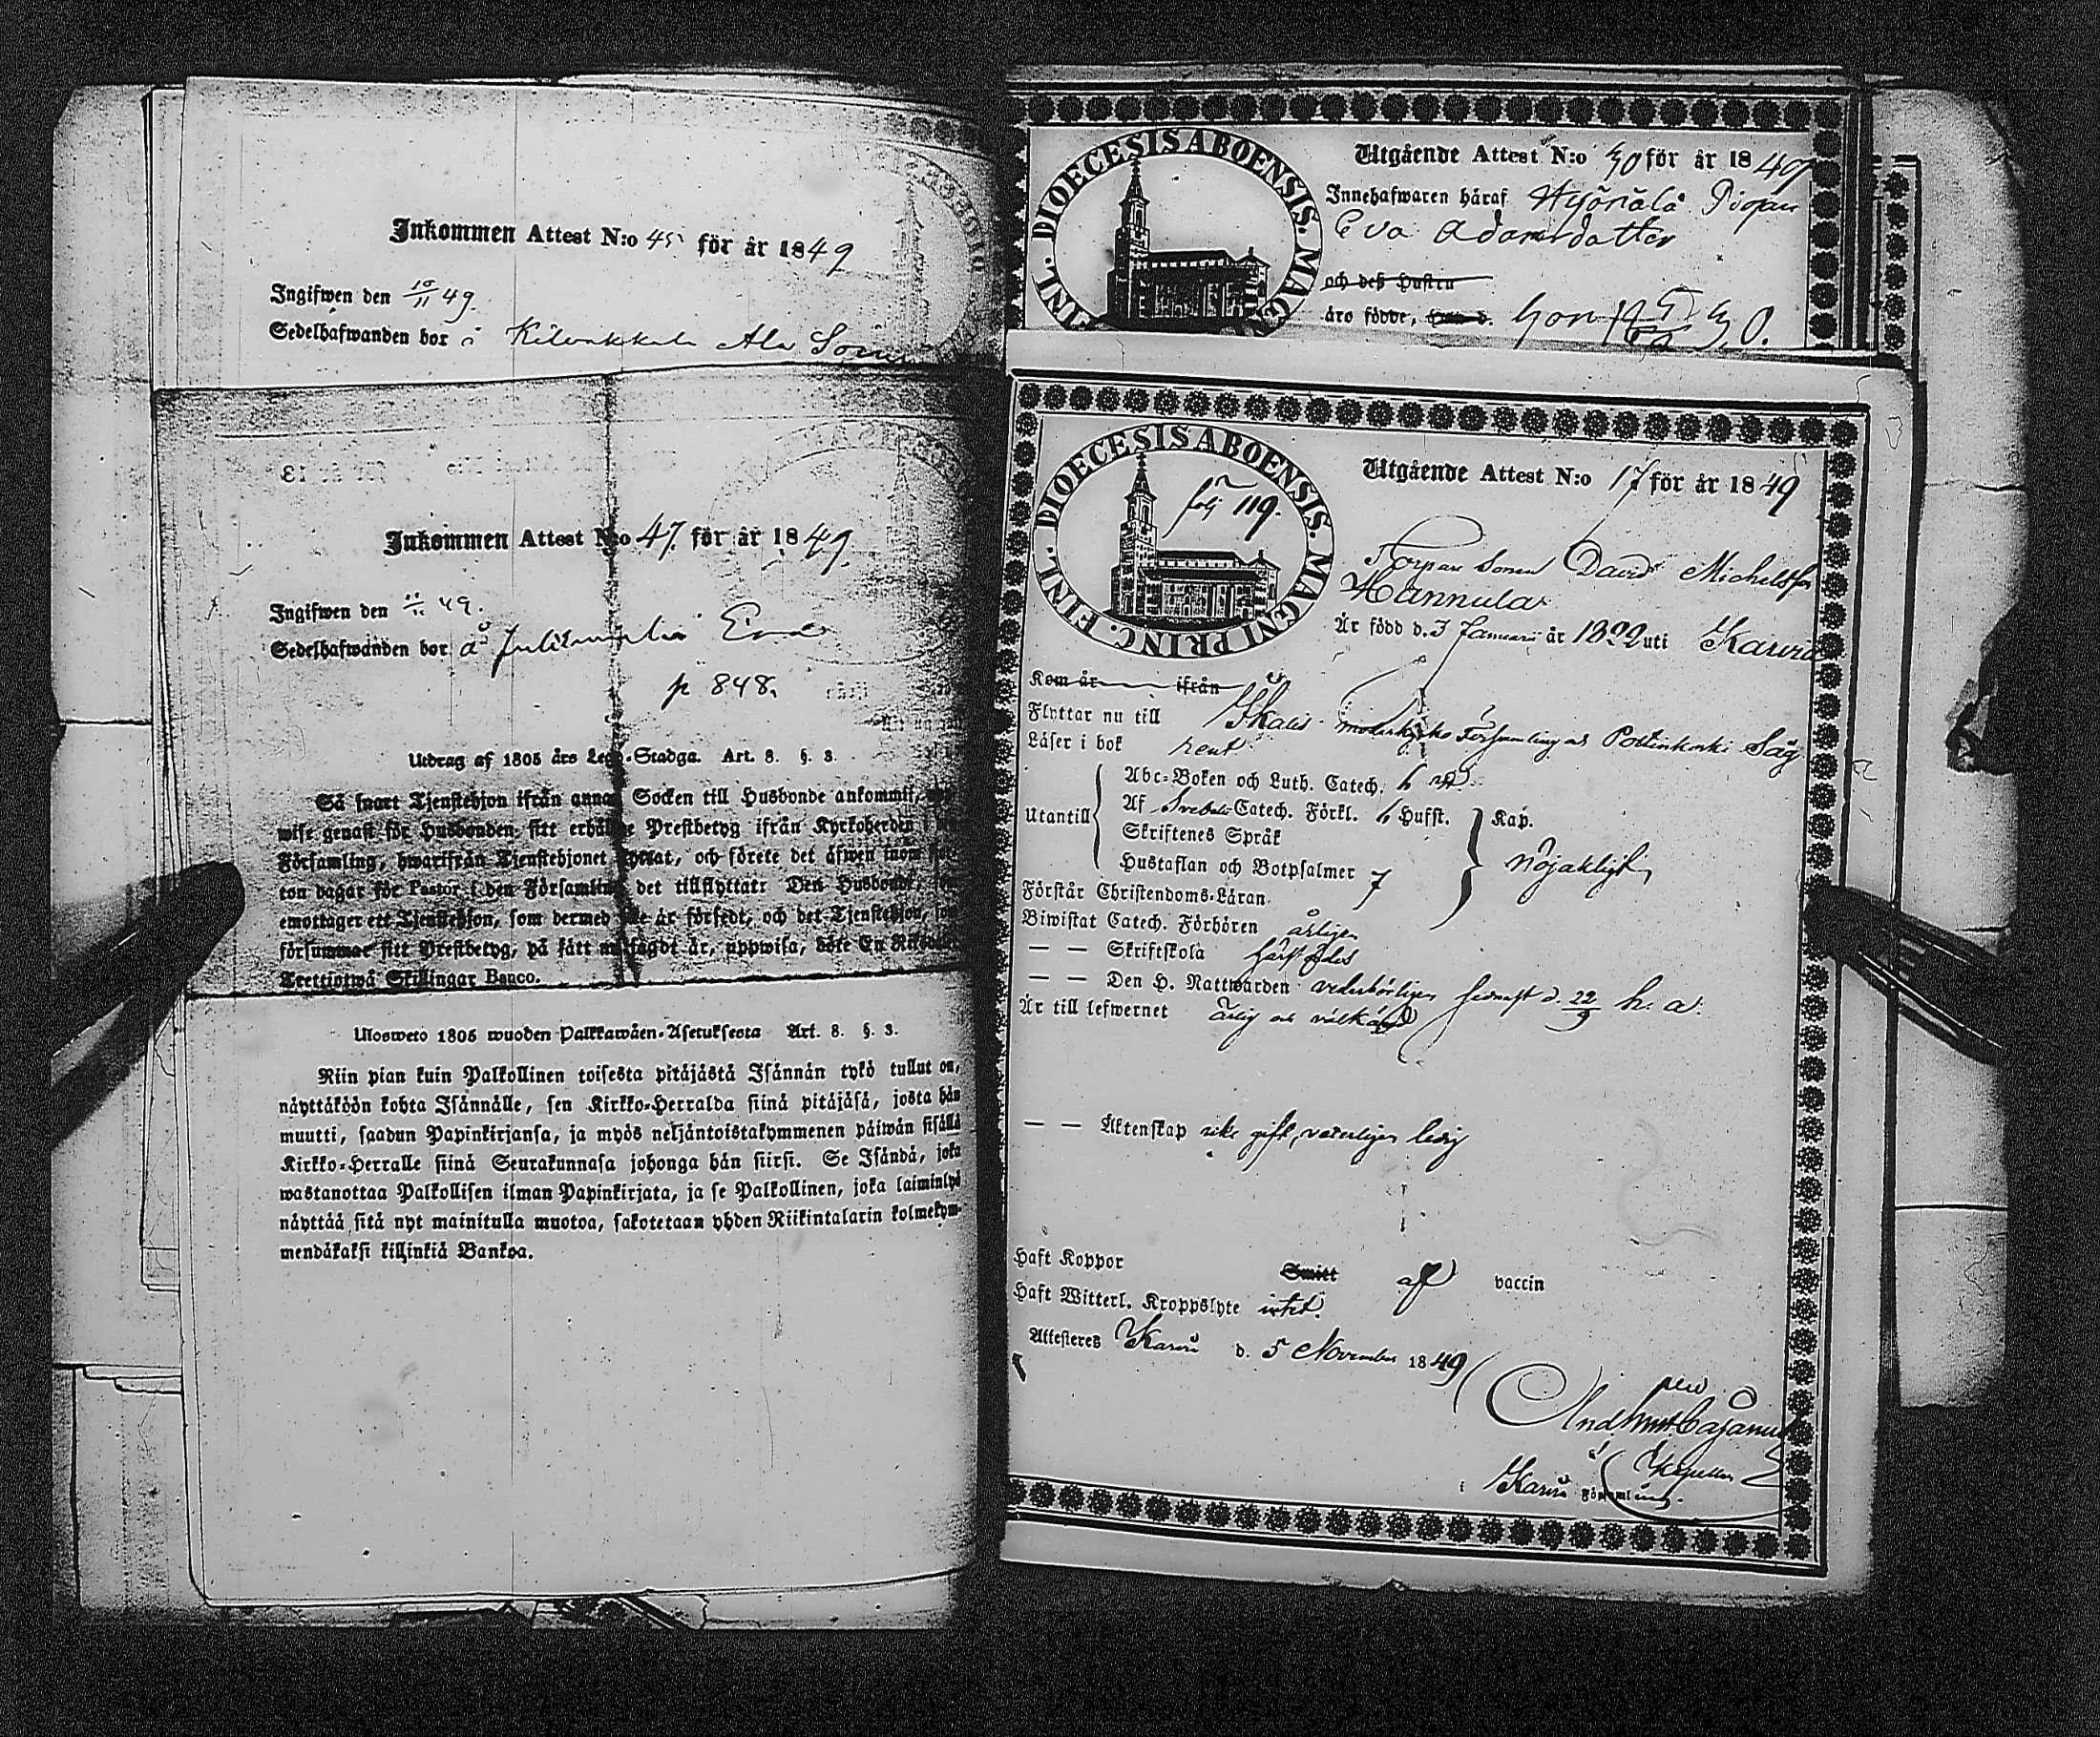 Inkommen Attest N:o 45 för år 1849
Ingifwen den 10/11 49.
Sedelhafwanden bor å
Inkommen Attest N:o 47. för år 1849.
Ingifwen den 49.
Sedelhafwanden bor å
p 848.
Utdrag af 1805 års Lego-Stadga. Art. 8. §. 3.
Så snart Tjenstehjon ifrån annan Socken till Husbonde ankommit,
wise genast för Husbonden sitt erhållne Prestbetyg ifrån Kyrkoherden i
Församling, hwarifrån Tjenstehjonet flyttat, och förete det äfwen inom
ton dagar för Pastor i den Församling det tillflyttat: Den Husbonde,
emottager ett Tjenstehjon, som dermed icke är försedt, och det Tjenstehjon,
försummar sitt Prestbetyg, på sätt nu sagdt är, uppwisa, böte En Riksdaler
Trettiotwå Skillingar Banco.
Ulosweto 1805 wuoden Palkkawäen-Asetuksesta Art. 8. §. 3.
Niin pian kuin Palkollinen toisesta pitäjästä Isännän tykö tullut on,
näyttäköön kohta Isännälle, sen Kirkko-Herralda siinä pitäjäsä, josta hän
muutti, saadun Papinkirjansa, ja myös neljäntoistakymmenen päiwän sisällä
Kirkko-Herralle siinä Seurakunnasa johonga hän siirsi. Se Isändä, joka
wastanottaa Palkollisen ilman Papinkirjata, ja se Palkollinen, joka laiminlyö
näyttää sitä nyt mainitulla muotoa, sakotetaan yhden Riikintalarin kolmekym-
mendäkaksi killinkiä Bankoa.
DIOECESIS ABOENSIS. MAG
FINL.
Utgående Attest N:o för år 1849
Innehafwaren häraf Pigan
Eva Adamsdotter
och deß Hustru
äro födde, Hon
DIOECESIS ABOENSIS. MAGNI PRINC. FINL.
folj 119.
Utgående Attest N:o 17 för år 1849
Torpare Sonen David Michelsson
Hannula
Är född d. 3 Januari år 1822 uti Karvia
Kom år ifrån
Flyttar nu till Ikalis moderkyrko Församling och Såg
Läser i bok rent
Utantill
Abc-Boken och Luth. Catech. 6
Af Svebeli Catech. Förkl. 6 Hufst. Kap.
Skriftenes Språk
Hustaflan och Botpsalmer 7 nöjakligt
Förstår Christendoms-Läran
Biwistat Catech. Förhören årligen
— — Skriftskola
— — Den H. Nattwarden vederbörligen senast d. 22/9 h. a.
Är till lefwernet Ärlig och välkänd
— — Äktenskap icke gift, vederligen ledig
Haft Koppor Smitt af vaccin
Haft Witterl. Kroppslyte intet.
Attesteras Karvia d. 5 November 1849
And. Cajanus
Kapellan
i Karvia Församling.